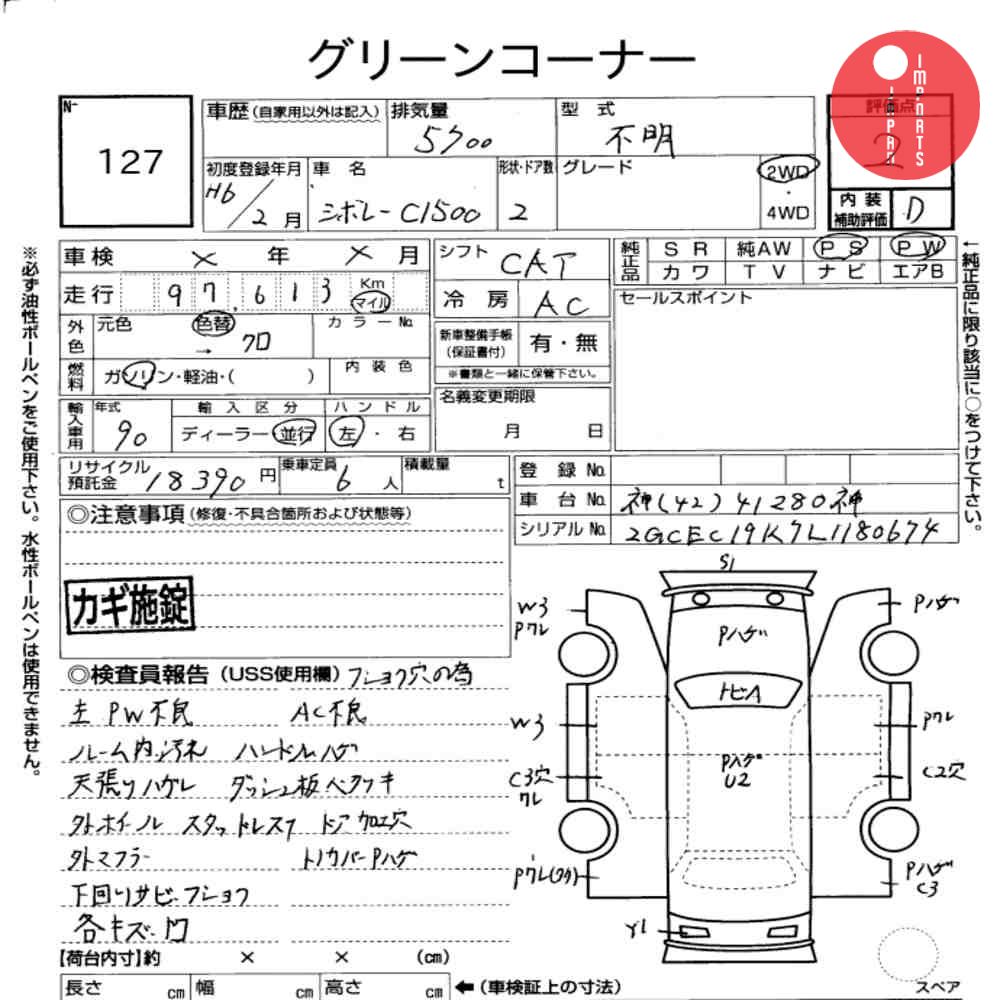 グリーンコーナー
IMPORTS
JAPAN
№
127
車歴(自家用以外は記入)
排気量
5700
型 式
不明
評価点
2
初度登録年月
H6/2月
車 名
シボレーC1500
形状・ドア数
2
グレード
2WD
・
4WD
内装
補助評価
D
※必ず油性ボールペンをご使用下さい。水性ボールペンは使用できません。
←純正品に限り該当に○をつけて下さい。
車検 × 年 × 月
シフト CAT
純正品
SR 純AW PS PW
カワ TV ナビ エアB
走行 97,613 Km マイル
冷房 AC
セールスポイント
外色
元色 色替 → クロ
カラー№
新車整備手帳
(保証書付)
有・無
※書類と一緒に保管下さい。
燃料
ガソリン・軽油・( )
内装色
名義変更期限
月 日
輸入車用
年式
90
輸入区分
ディーラー・並行
ハンドル
左・右
リサイクル
預託金
18390円
乗車定員
6人
積載量
t
登録 №
車台 № 神(42)41280神
シリアル № 2GCEC19K7L1180674
◎注意事項(修復・不具合箇所および状態等)
カギ施錠
◎検査員報告(USS使用欄) フショク穴の為
主 PW不良 AC不良
ルーム内汚れ ハンドルハゲ
天張りハゲレ ダッシュ板ベタツキ
外ホイール スタッドレス7 ドア加工穴
外マフラー トノカバーPハゲ
下回りサビ フショク
各キズ 凹
S1
W3
Pワレ
Pハゲ
Pハゲ
トビA
W3
Pワレ
Pハゲ
U2
C3穴
ワレ
C2穴
Pハゲ
C3
Y1
【荷台内寸】約 × × (cm)
長さ cm 幅 cm 高さ cm
←(車検証上の寸法)
スペア